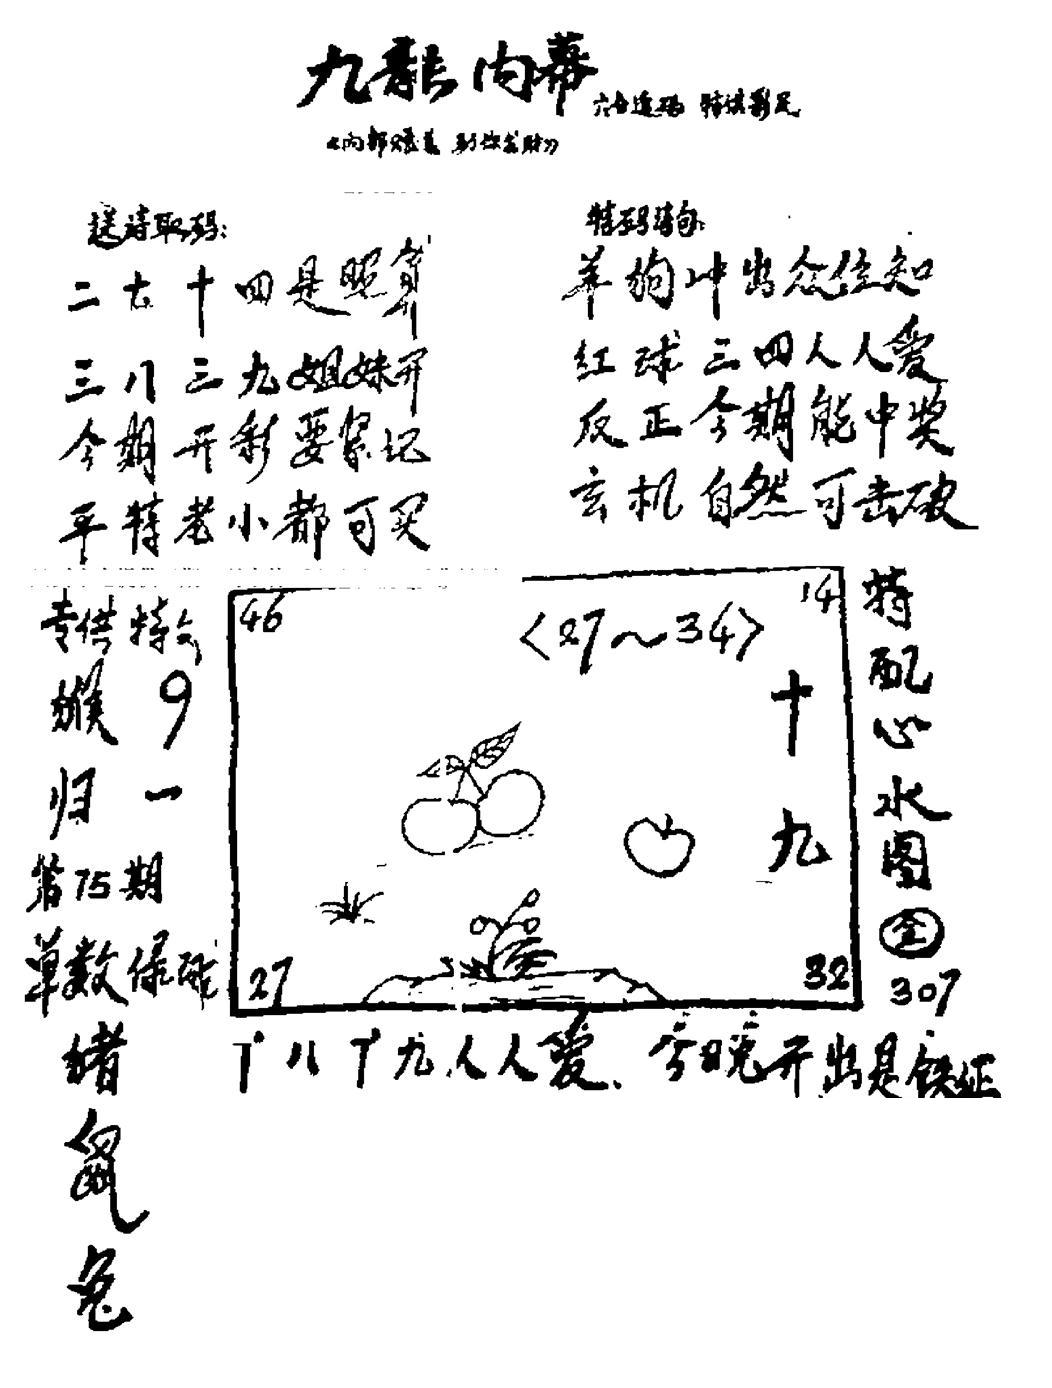 九龍内幕
六合透码
送诗取码:
特码诗句:
二七十四是照算
三八三九姐妹开
今期开彩要紧记
平特老小都可买
羊狗冲出众位知
红球三四人人爱
反正今期能中奖
玄机自然可击破
专供特
猴 9
归一
第75期
单数保
猪
鼠
兔
46
14
<27~34>
十九
27
32
特配心水图
全
307
十八十九人人爱、今晚开出是铁证